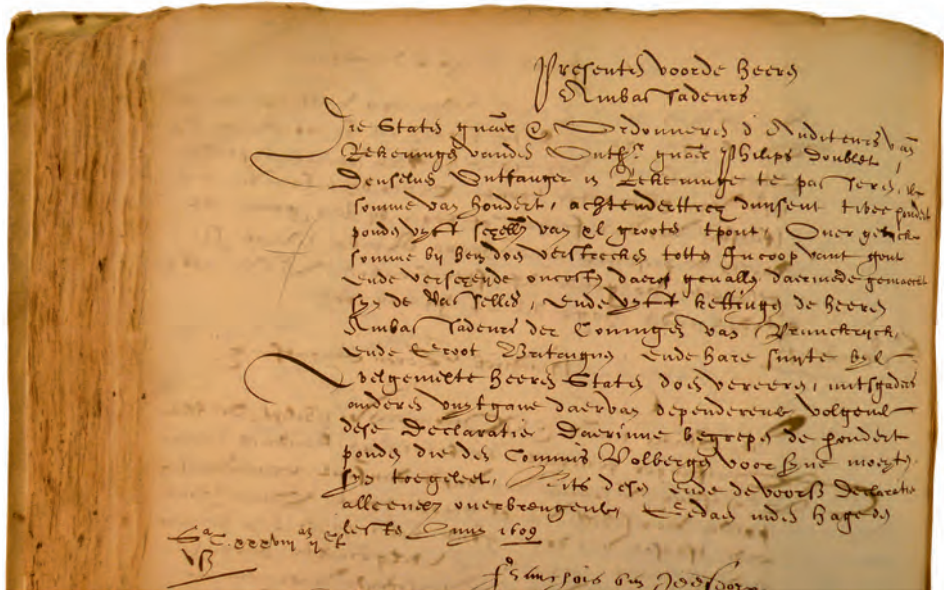 Presenten voorde heeren
Ambassadeurs
Die Staten gnael &c Ordonneren d'Auditeurs van
Rekeninge vanden Ontf. gnael Philips Doublet,
Denselven Ontfanger in Rekeninge te passeren, de
somme van hondert, achtendertich duysent twee hondert
ponden vyfft schell van xl groote tpont, Over gelycke
somme by hem doen verstrecken totten Incoop vant gout
ende verscheyde oncosten daerop gevallen daermede gemaect
syn de Vasselles, ende vyfft kettingen de heeren
Ambassadeurs der Coningen van Vranckryck,
ende Groot Britaignen ende hare suyte by
welgemelte heeren Staten doen vereeren, mitsgaders
anderen uuytgave daervan dependerende volgende
dese Declaratie Daerinne begrepen de hondert
ponden die den Commis Volbergen voor syne moeyten
syn toegeleet, Mits desen ende de voors Declaratie
alleenlyck overbrengende, Gedaen inden Hage den
lesten Juny 1609
xxxviii ii
Franchois van